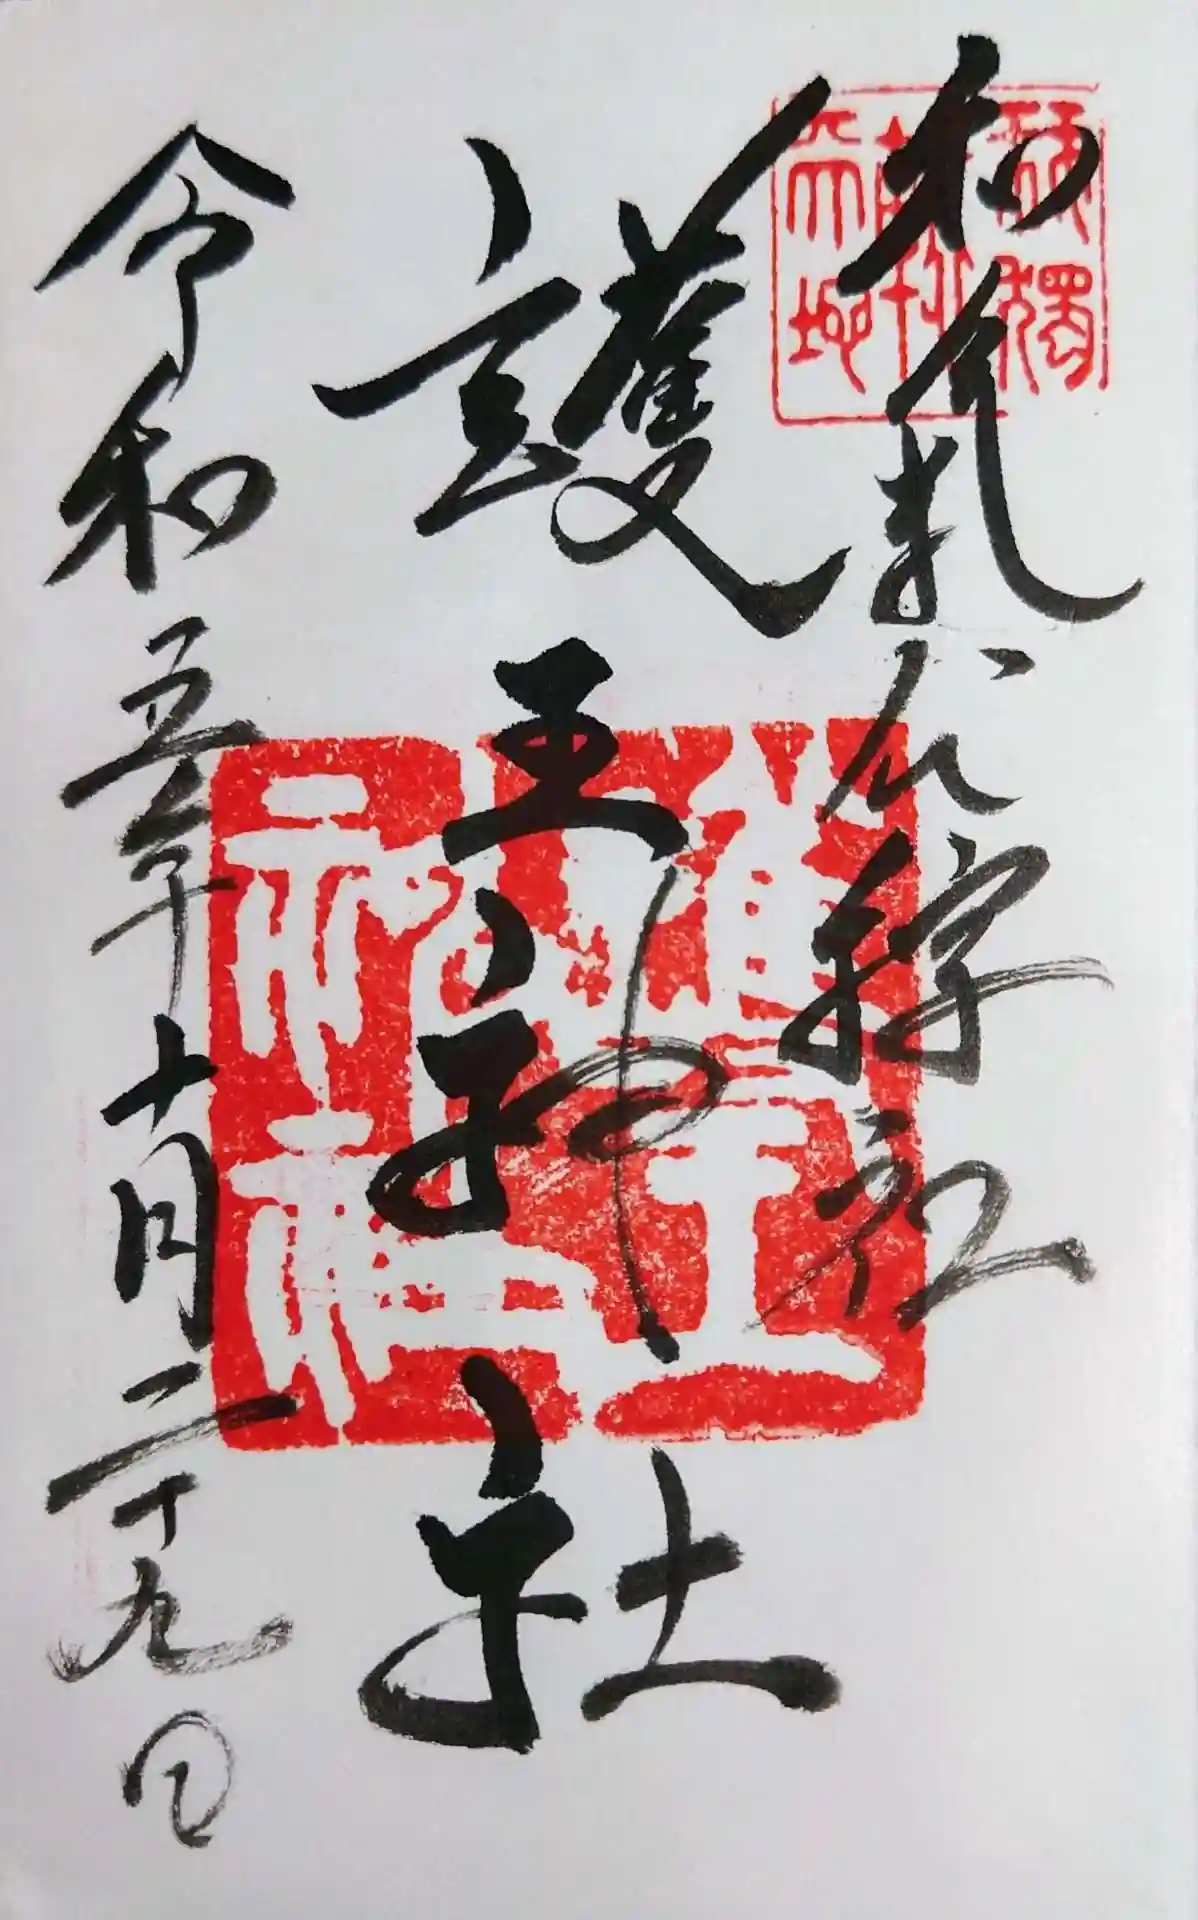 和氣公綜社
護王神社
護王
神社
令和五年十月二十九日